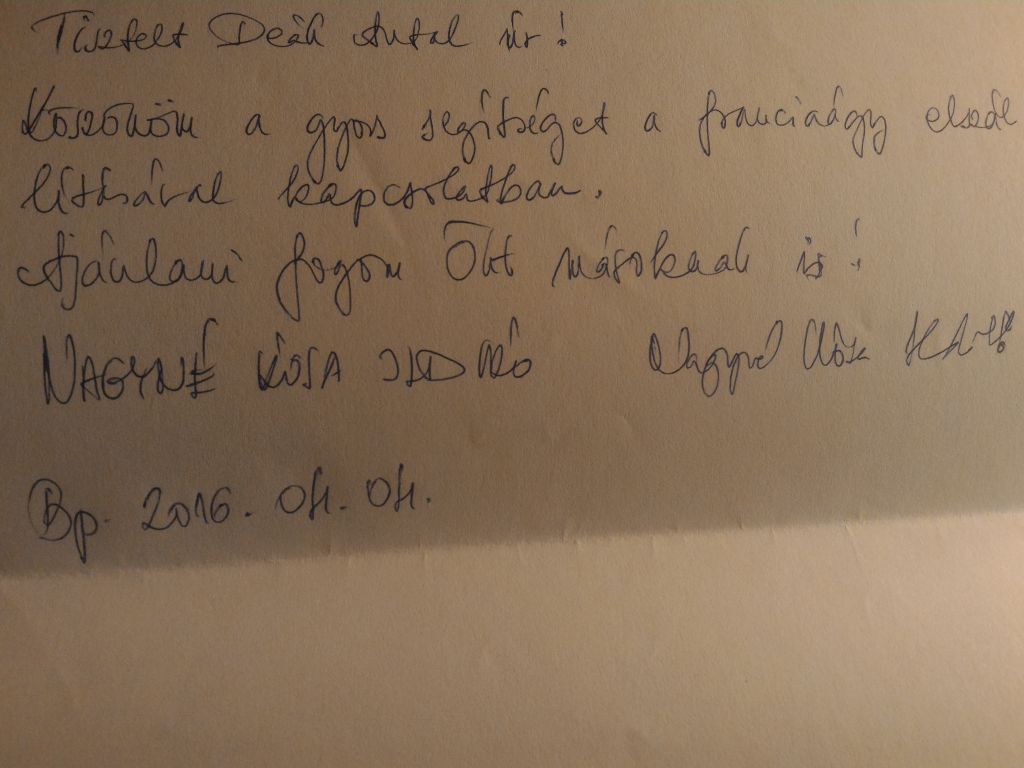 Tisztelt Deák Antal úr!
Köszönöm a gyors segítséget a franciaágy elszál
lításával kapcsolatban.
Ajánlani fogom Önt másoknak is!
NAGYNÉ KÓSA ILDIKÓ Nagyné Kósa
Bp. 2016. 04. 04.